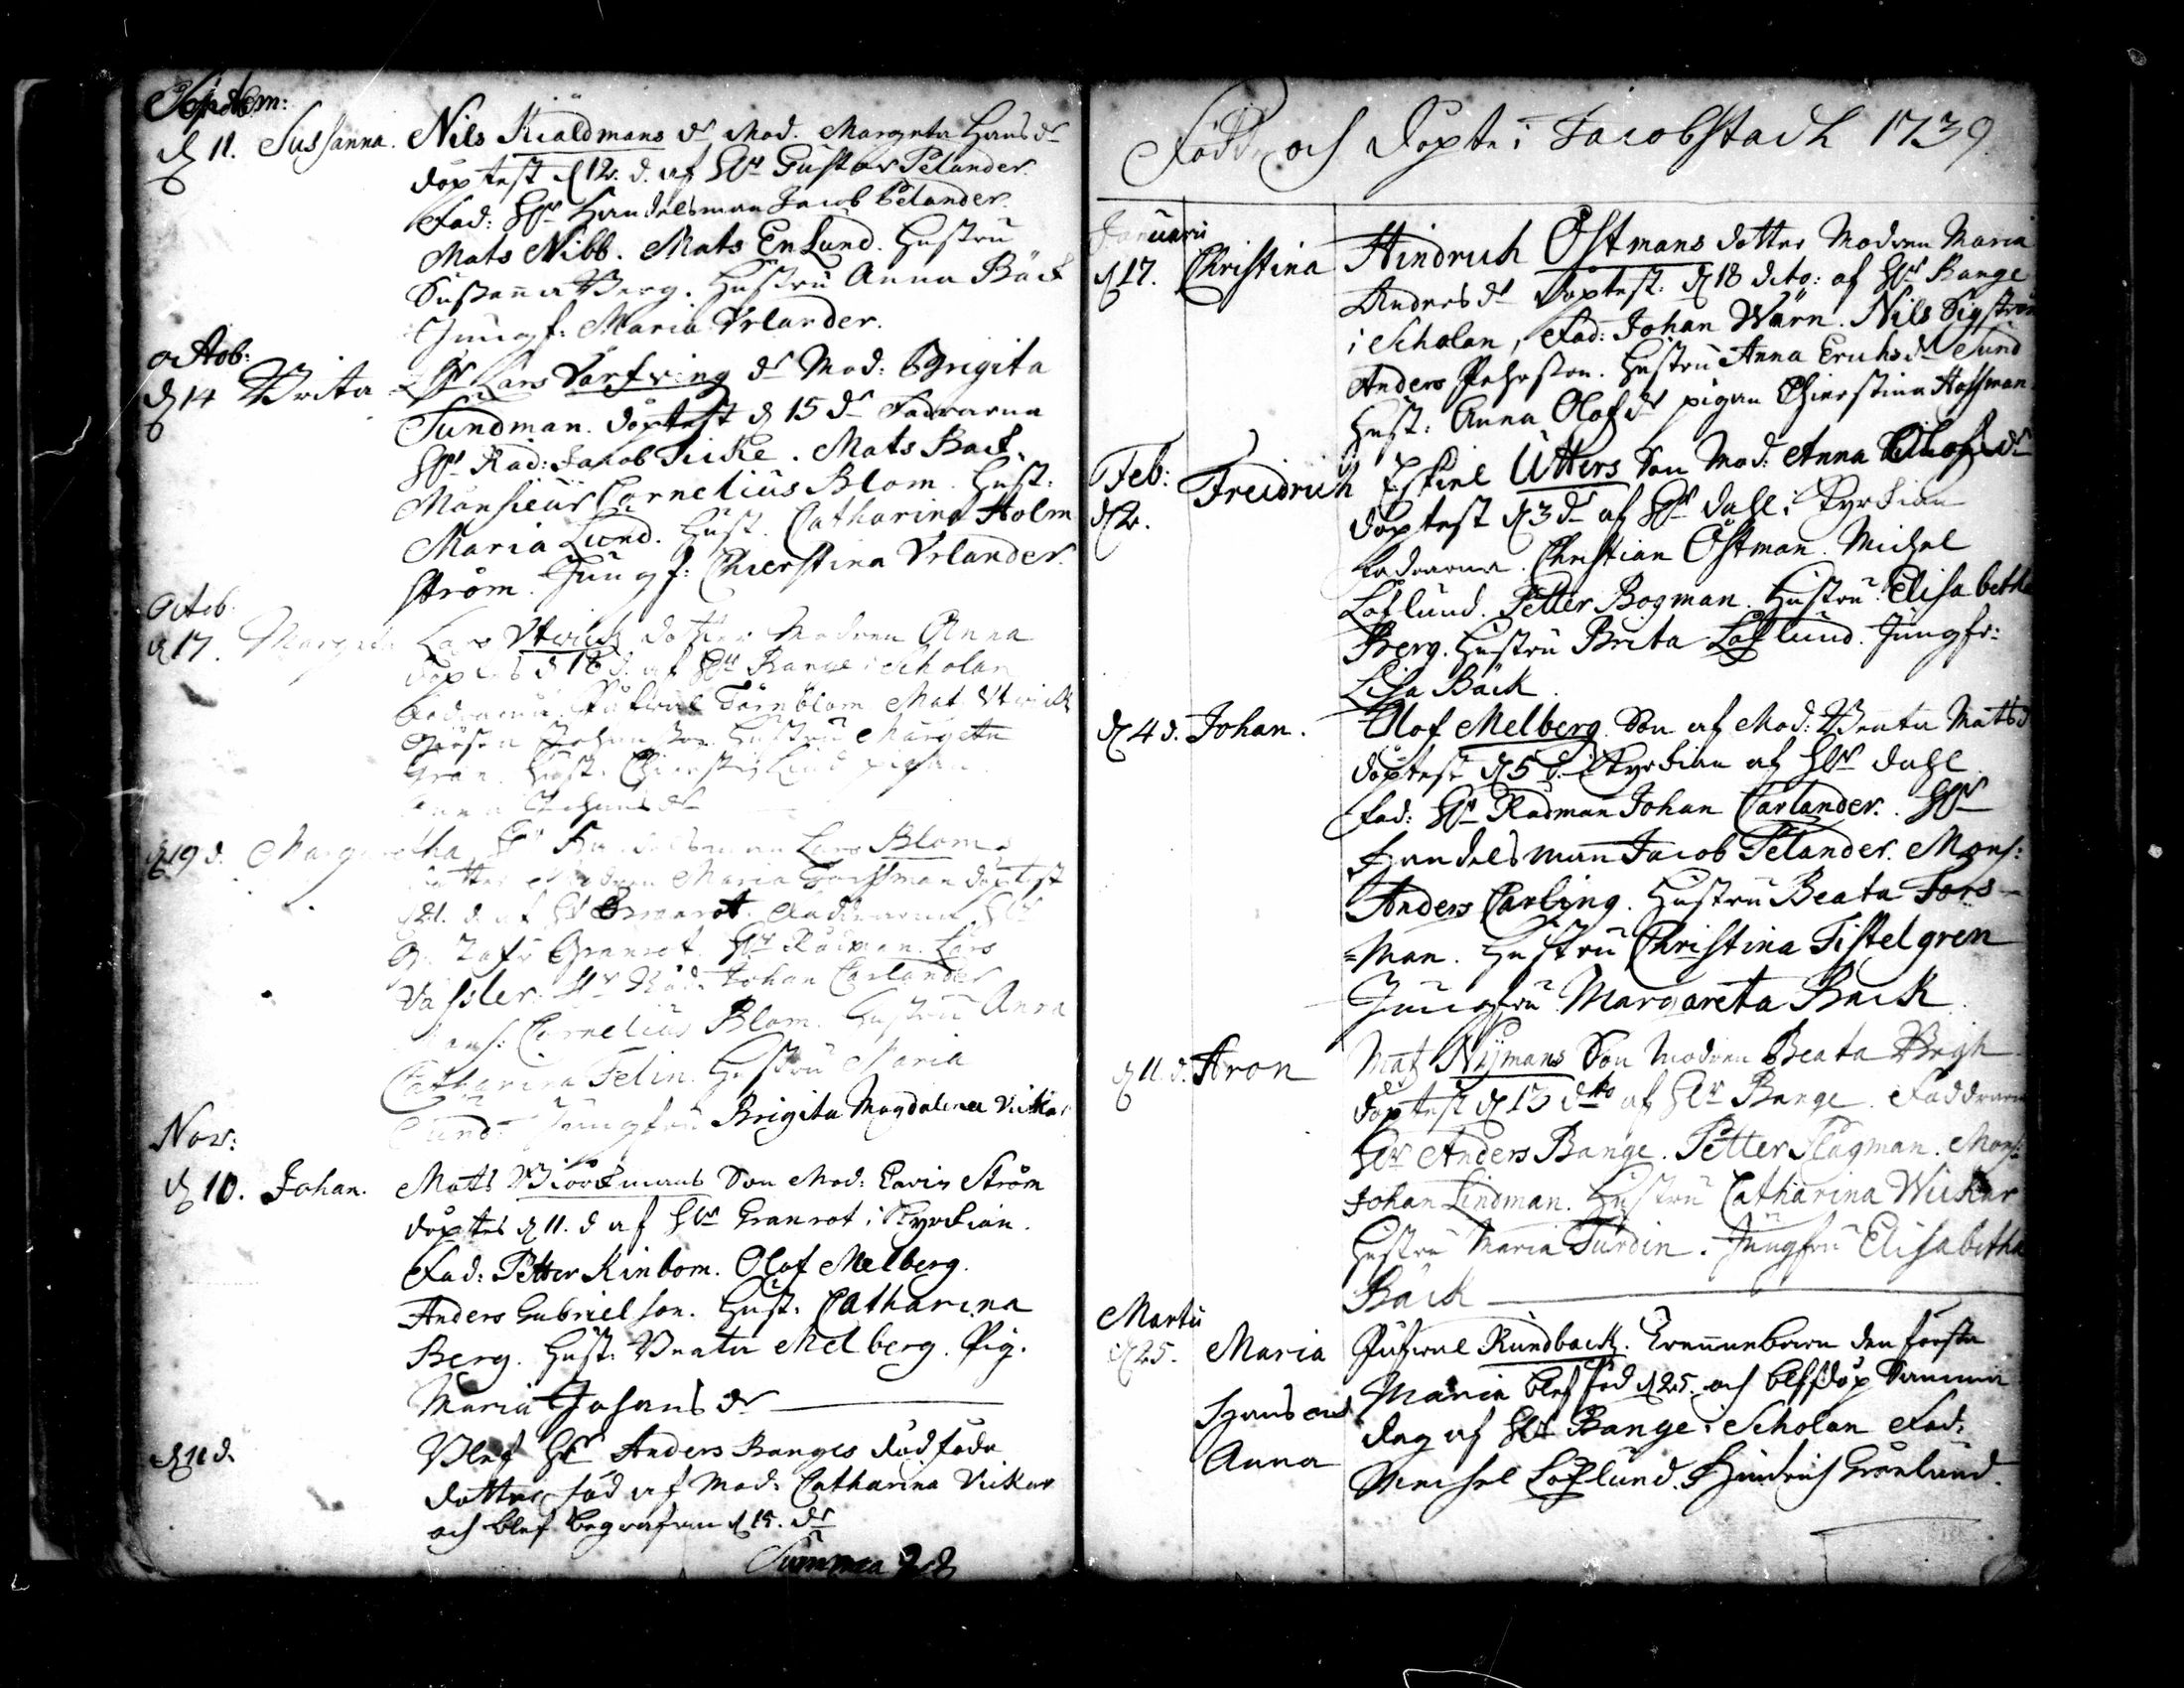 Septem:
d 11. Sussanna. Nils Kialdmans dr Mod. Margeta Hansdr
döptest d 12. d. af Hr Gustav Pelander.
Fad: Hr Handelsman Jacob Pelander.
Mats Nibb. Mats Enlund. Hustru
Susanna Berg. Hustru Anna Bäck
Jungf: Maria Urlander.
octob:
d 14 Brita Hr Lars Varfving dr Mod: Brigita
Sundman. döptest d 15 dr Faddrarna
Hr Råd: Jacob Ticke. Mats Back.
Monsieur Cornelius Blom. Hust:
Maria Lund. Hust. Catharina Holm
ström. Jungf: Chierstina Urlander.
Octob.
d 17. Margeta Lars Utwick dotter Modren Anna
döptes d 18 d. af Hr Bange i Scholan
Faddrarna Törnblom Mat Utwick
Johansson Hustru Margeta
Gran. Hust. Chierstin Lund pigan
Anna Johansdr
d 19 d. Margretha Hr Handelsman Lars Bloms
dotter Modren Maria Forssman döptest
d 21. d. af Hr Granrot. Faddrarna Hr
Granrot. Hr Rådman Lars
Vassler. Hr Råd: Johan Carlander
Mons: Cornelius Blom. Hustru Anna
Catharina Felin. Hustru Maria
Lund. Jungfru Brigita Magdalena Vickar
Nov:
d 10. Johan. Mats Biörkmans Son Mod: Carin Ström
döptes d 11. d af Hr Granrot i Kyrckian.
Fad: Petter Kinbom. Olof Melberg.
Anders Gabrielson. Hust: Catharina
Berg. Hust: Beata Melberg. Pig.
Maria Johansdr
d 11 d. Blef Hr Anders Banges dödföda
dotter född af Mod: Catharina Vickar
och blef begrafven d 15. dr
Summa 28
Född och Döpte i Jacobstadh 1739.
Januarii
d 17. Christina Hindrich Östmans dotter Modren Maria
Andersdr döptest: d 18 dito: af Hr Bange
i Scholan, Fad: Johan Wärn. Nils Sigström
Anders Pehrsson. Hustru Anna Erichsdr Sund
Hust: Anna Olofsdr pigan Chierstina Hossman.
Feb:
d 2. Freidrich Eskiel Utters Son Mod: Anna Olofsdr
döptest d 3 dr af Hr Dahl i Kyrckian
Faddrarna. Christian Östman. Michel
Löflund. Petter Bogman. Hustru Elisabetha
Berg. Hustru Brita Löflund. Jungfr:
Lisa Bäck.
d 4 d. Johan. Olof Melberg Son af Mod: Beata Matsd
döptest d 5 d. i Kyrckian af Hr Dahl
Fad: Hr Rådman Johan Carlander. Hr
Handelsman Jacob Pelander. Mons:
Anders Carling. Hustru Beata Fors-
=man. Hustru Christina Tistelgren
Jungfru Margareta Back.
d 11. d. Aron Mats Nymans Son Modren Beata Bergh
döptest d 13 dito af Hr Bange. Faddrarna
Hr Anders Bange. Petter Plagman. Mons:
Johan Lindman. Hustru Catharina Wickar
Hustru Maria Turdin. Jungfru Elisabetha
Bäck
Martii
d 25. Maria Rundback. Trenne barn den första
Maria blef född d 25. och blef döpt Samma
Hans och
dag af Hr Bange i Scholan Fad:
Anna
Michel Löflund. Hindrich Grönlund.